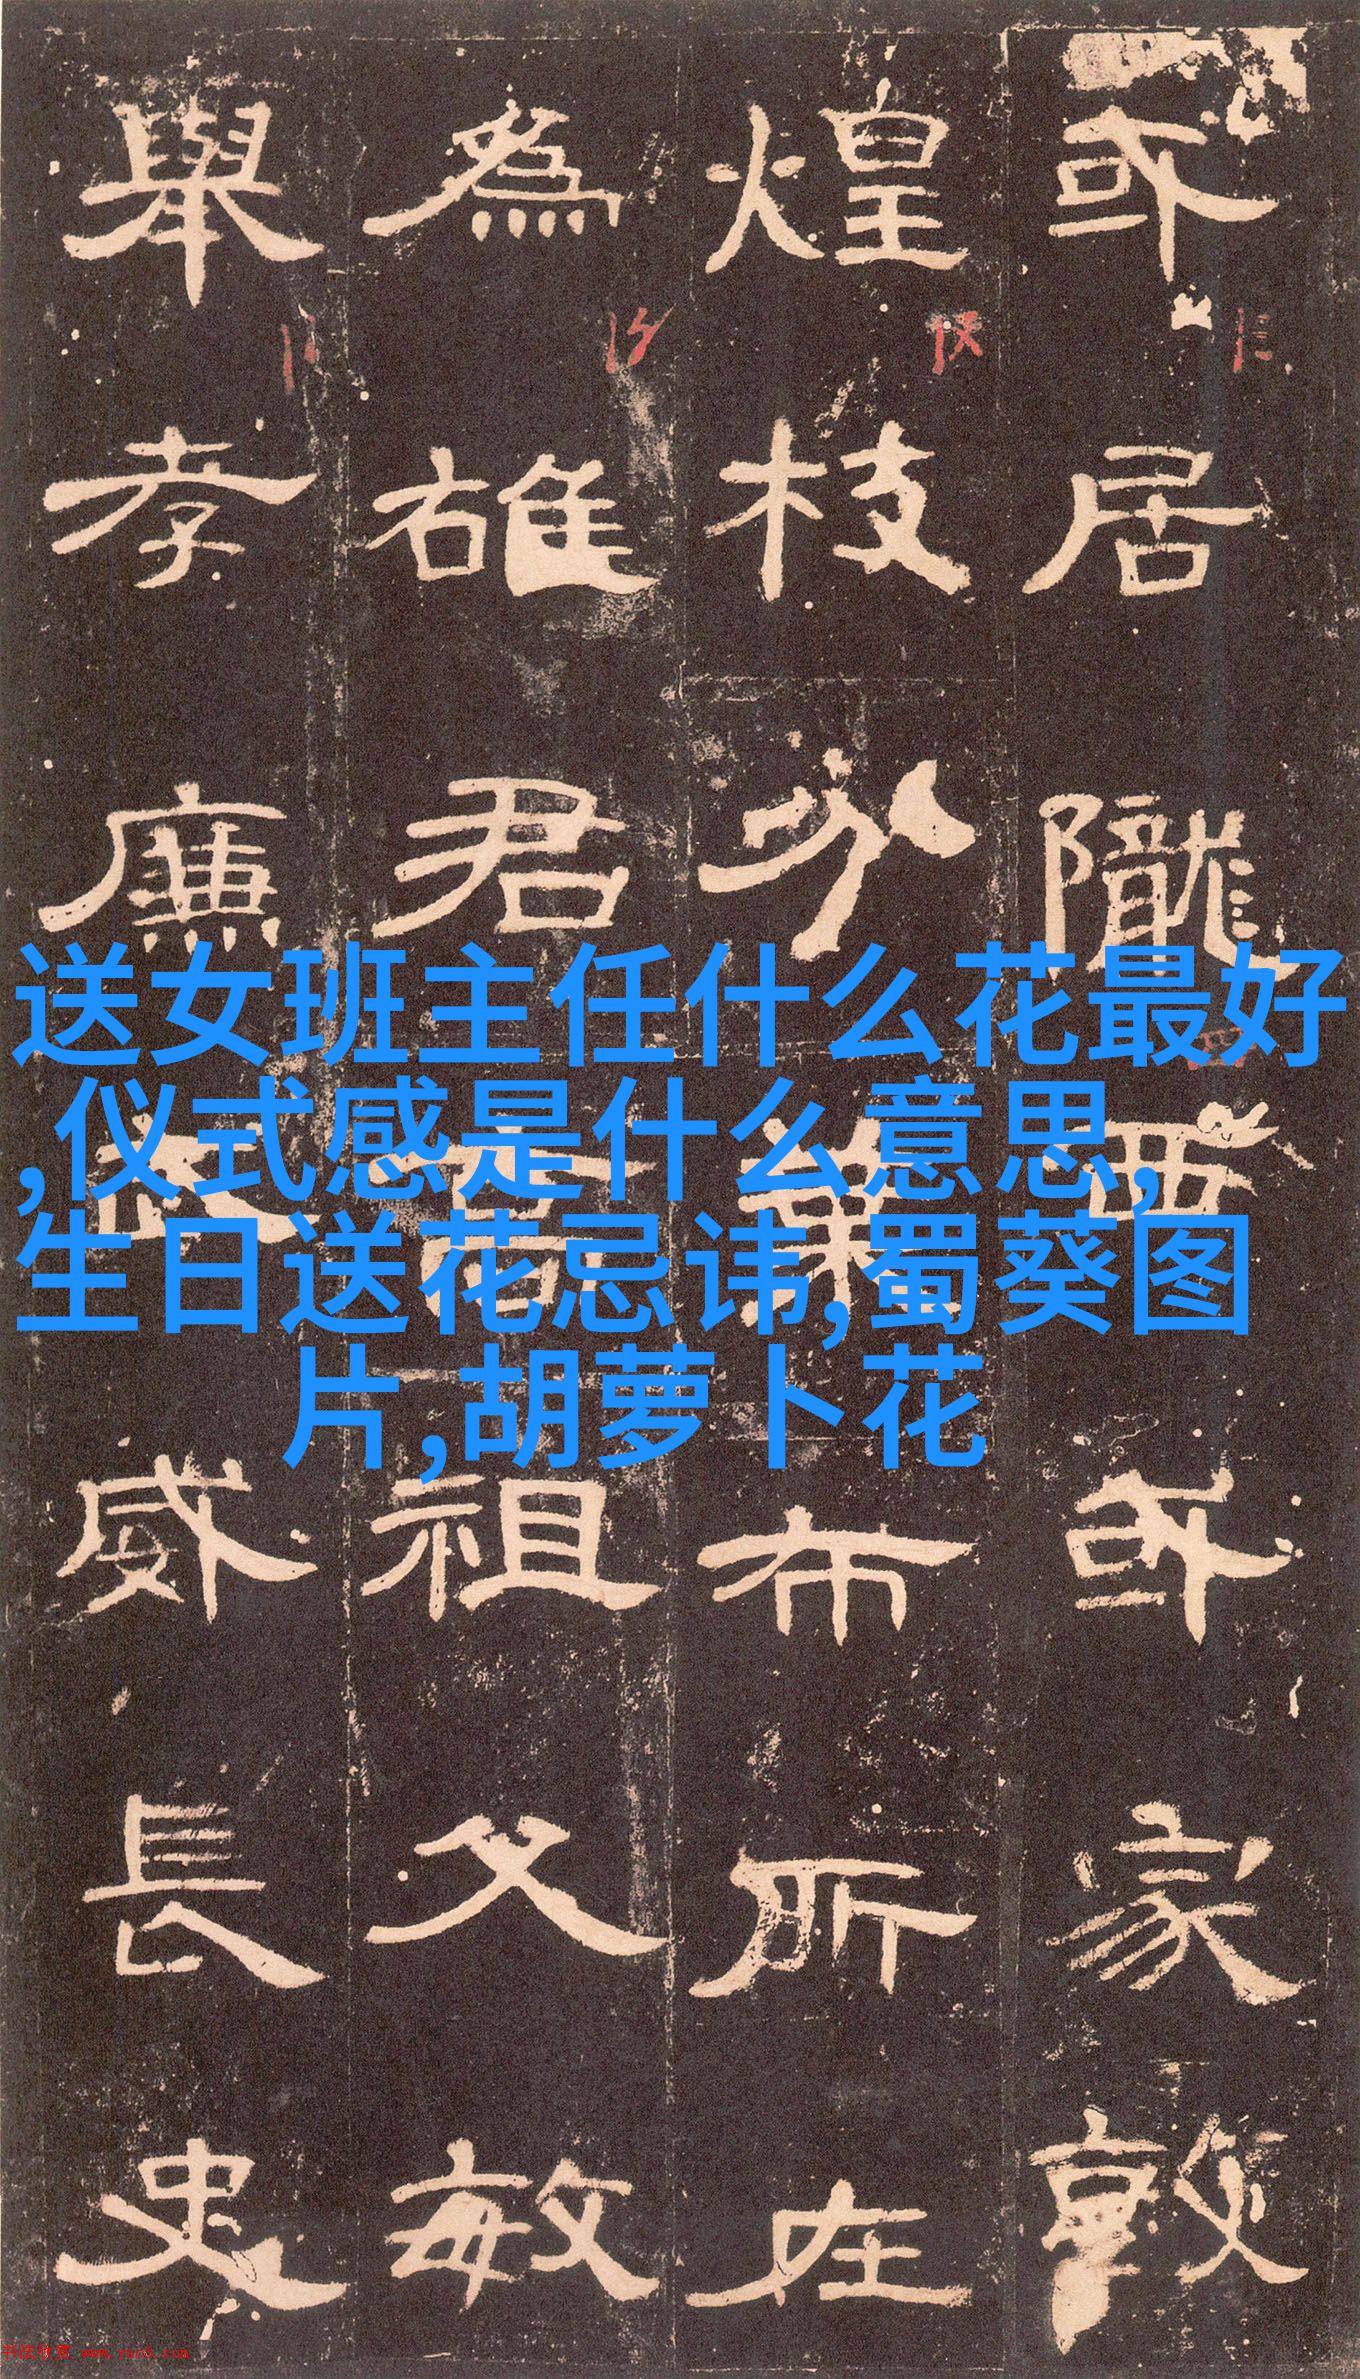 或居隴西或家敦
煌枝分葉布所在
為雄君高祖父敏
舉孝廉武威長史
送女班主任什么花最好
,仪式感是什么意思,
生日送花忌讳,蜀葵图
片,胡萝卜花
书法欣赏 www.yac8.com